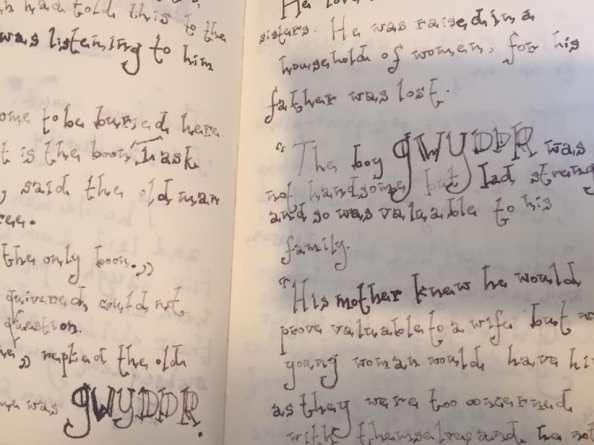 had told this is the
was listening to him
to be buried here
is the boon I ask
said the old man
the only boon."
quivered, could not
question.
replied the old
was GWYDDR.
sisters. He was raised in a
household of women, for his
father was lost.
"The boy GWYDDR was
not handsome but had strength
and so was valuable to his
family.
"His mother knew he would
prove valuable to a wife but
young woman would have
as they were too concerned
with themselves and he